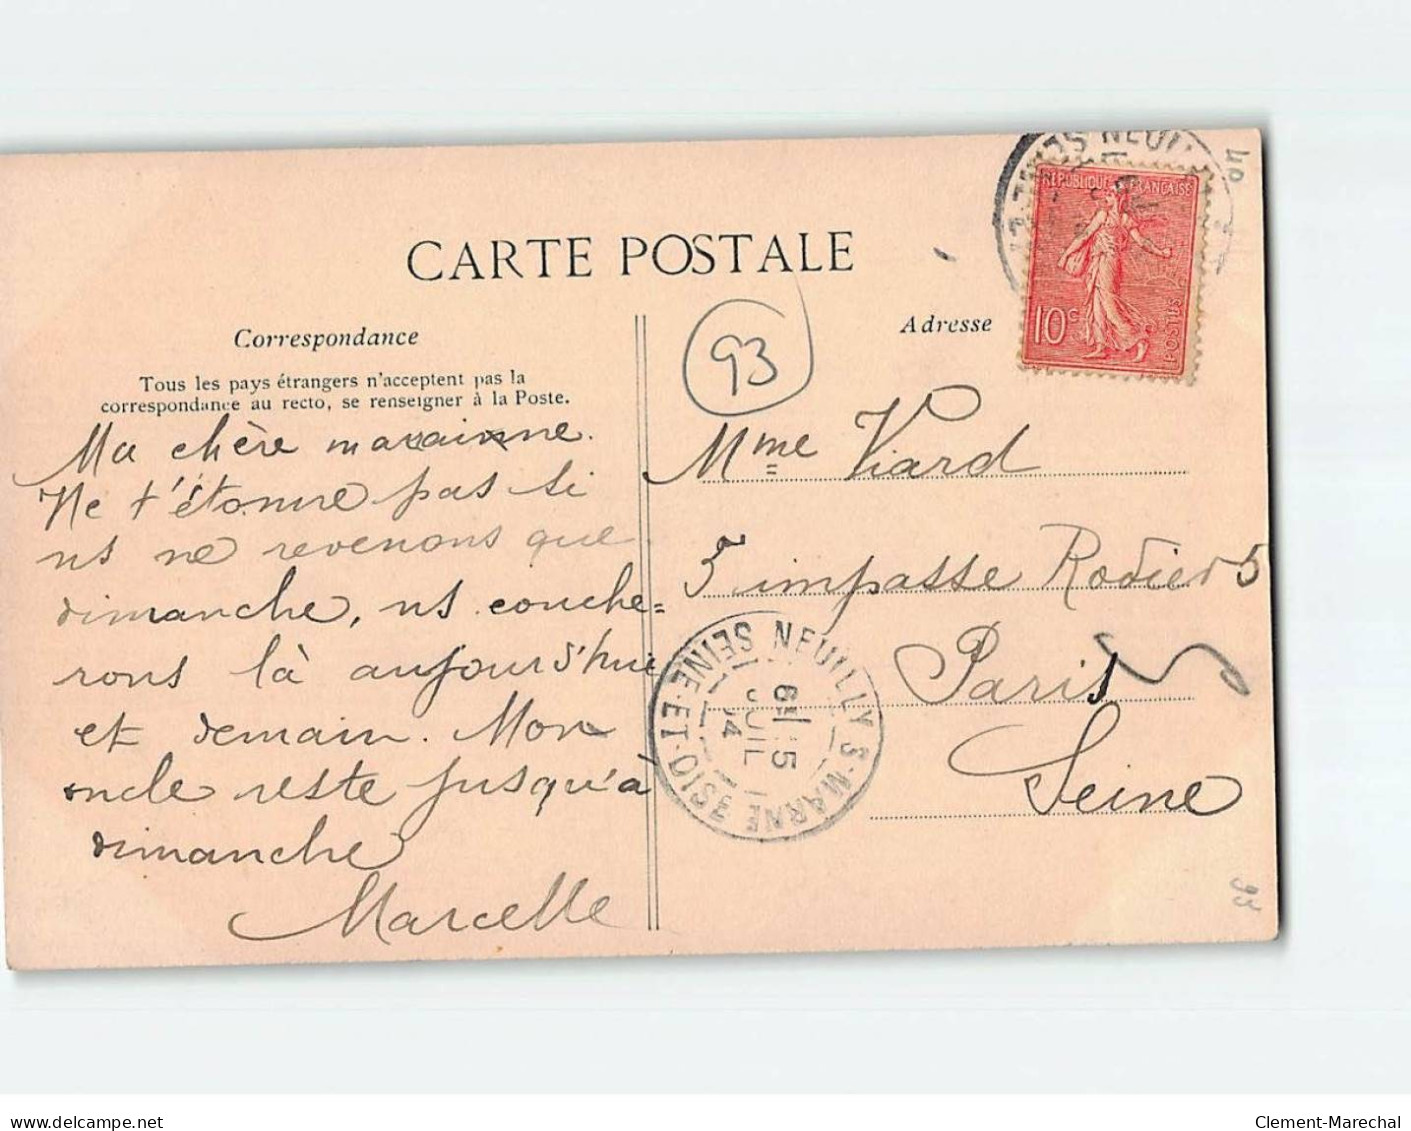 CARTE POSTALE
Correspondance
Tous les pays étrangers n'acceptent pas la
correspondance au recto, se renseigner à la Poste.
Ma chère marainne.
Ne t'étonne pas si
ns ne revenons que
dimanche, ns couche=
rons là aujourd'hui
et demain. Mon
oncle reste jusqu'à
dimanche
Marcelle
93
Adresse
Mme Viard
5 impasse Rodier 5
Paris
Seine
RÉPUBLIQUE FRANÇAISE
10c
POSTES
NEUILLY
NEUILLY S-MARNE
SEINE-ET-OISE
15
JUIL
04
40
93
delcampe.net
Clement-Marechal